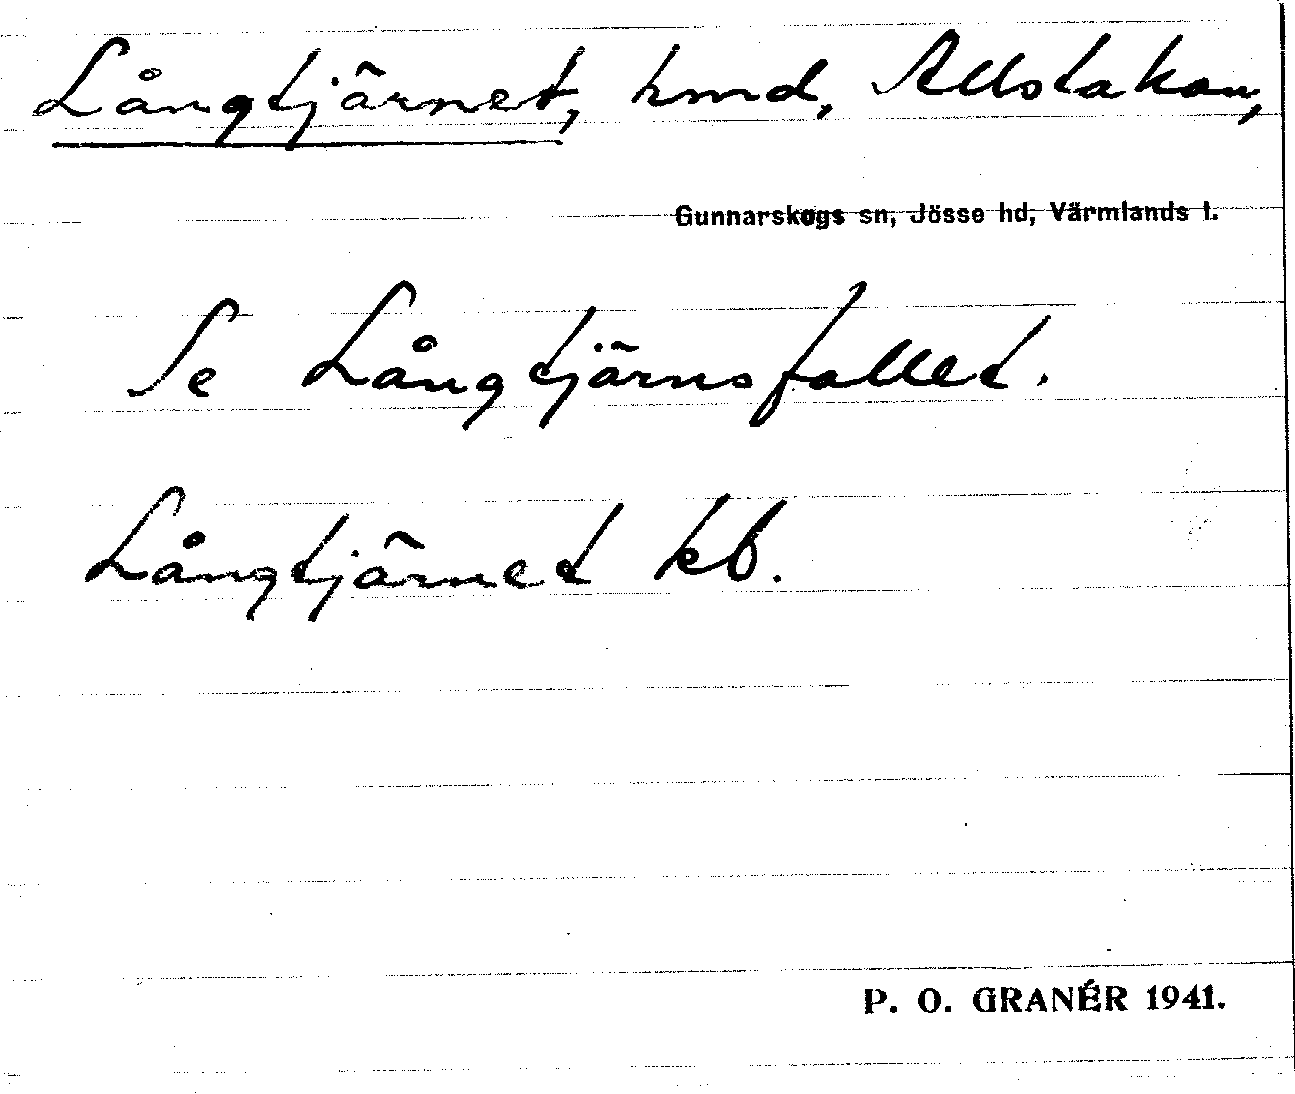 Långtjärnet, hmd, Allstakan,
Gunnarskogs sn, Jösse hd, Värmlands l.
Se Långtjärnsfallet.
Långtjärnet kb.
P. O. GRANÉR 1941.